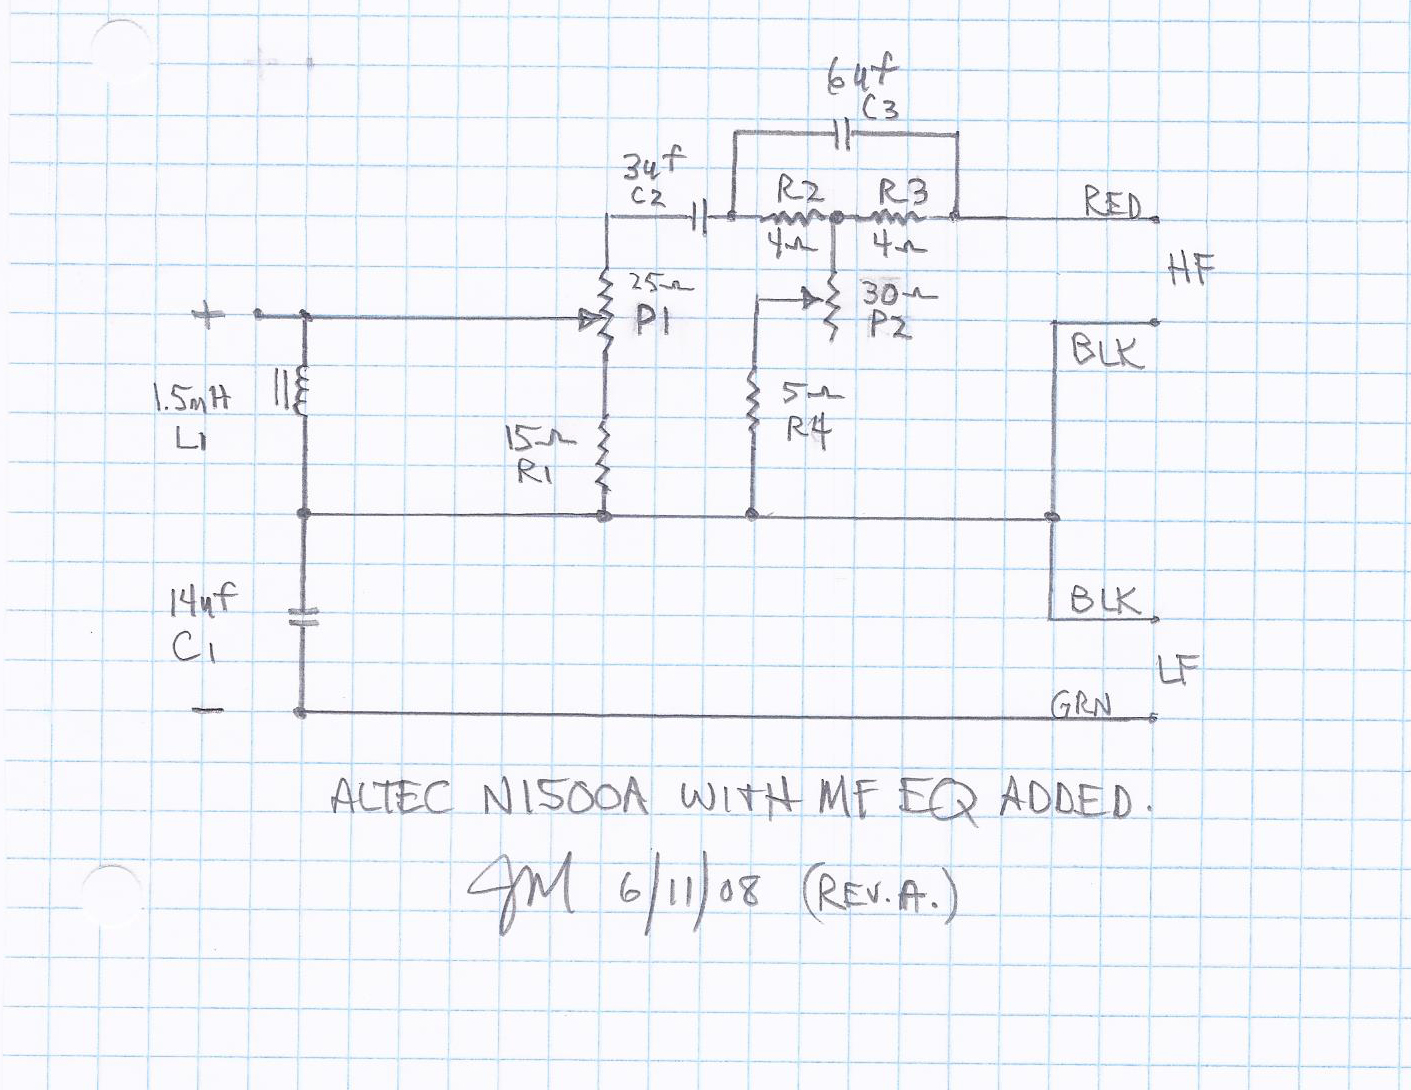 6uf
C3
3uf
C2
R2
R3
4Ω
4Ω
RED
HF
25Ω
P1
30Ω
P2
+
BLK
1.5mH
L1
5Ω
R4
15Ω
R1
14uf
C1
BLK
LF
GRN
−
ALTEC N1500A WITH MF EQ ADDED.
JM 6/11/08 (REV.A.)